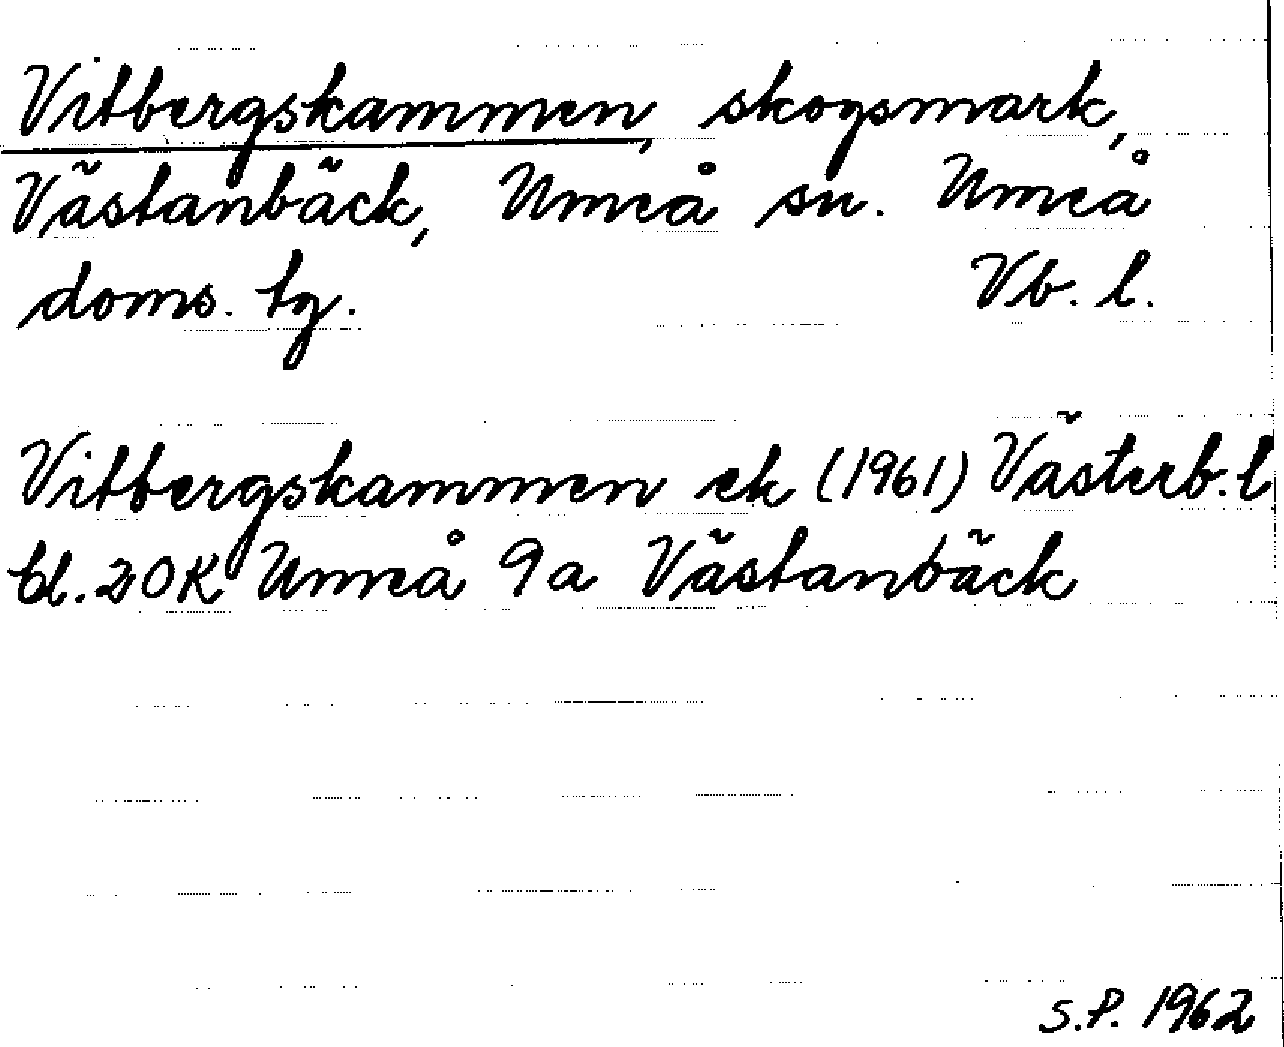 Vitbergskammen, skogsmark,
Västanbäck, Umeå sn. Umeå
doms. tg. Vb. l.
Vitbergskammen ek (1961) Västerb. l
bl. 20K Umeå 9a Västanbäck
S.P. 1962